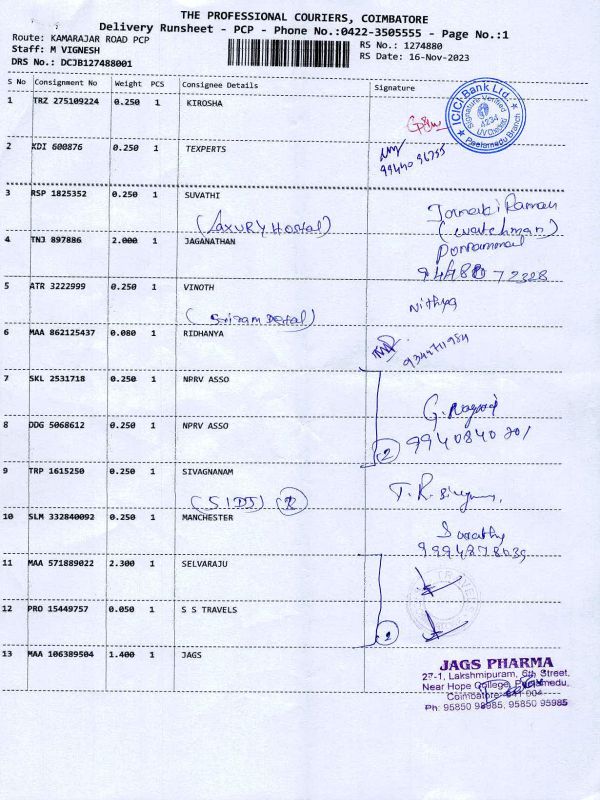 THE PROFESSIONAL COURIERS, COIMBATORE
Delivery Runsheet - PCP - Phone No.:0422-3505555 - Page No.:1
Route: KAMARAJAR ROAD PCP
Staff: M VIGNESH
DRS No.: DCJB127488001
RS No.: 1274880
RS Date: 16-Nov-2023
S No Consignment No Weight PCS Consignee Details Signature
1 TRZ 275109224 0.250 1 KIROSHA
ICICI Bank Ltd.
Signature Verified
4234
Peelamedu Branch
2 KDI 600876 0.250 1 TEXPERTS
3 RSP 1825352 0.250 1 SUVATHI
(Laxury Hostal)
(watchman)
4 TNJ 897886 2.000 1 JAGANATHAN
5 ATR 3222999 0.250 1 VINOTH
Nithya
6 MAA 862125437 0.080 1 RIDHANYA
7 SKL 2531718 0.250 1 NPRV ASSO
8 DDG 5068612 0.250 1 NPRV ASSO
2
9940840201
9 TRP 1615250 0.250 1 SIVAGNANAM
10 SLM 332840092 0.250 1 MANCHESTER
11 MAA 571889022 2.300 1 SELVARAJU
12 PRO 15449757 0.050 1 S S TRAVELS
13 MAA 106389504 1.400 1 JAGS
JAGS PHARMA
27-1, Lakshmipuram, 6th Street,
Near Hope College, Peelamedu,
Coimbatore- 641 004
Ph: 95850 98985, 95850 95985